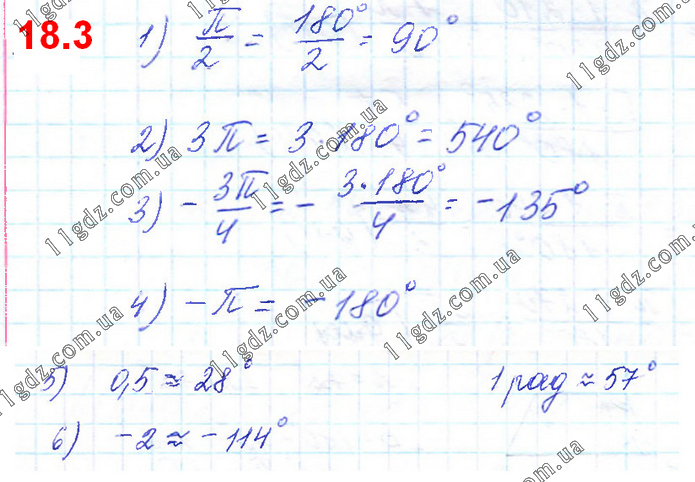 18.3
1) π/2 = 180°/2 = 90°
2) 3π = 3·180° = 540°
3) -3π/4 = - 3·180°/4 = -135°
4) -π = -180°
5) 0,5 ≈ 28° 1 рад ≈ 57°
6) -2 ≈ -114°
11gdz.com.ua
11gdz.com.ua
11gdz.com.ua
11gdz.com.ua
11gdz.com.ua
11gdz.com.ua
11gdz.com.ua
11gdz.com.ua